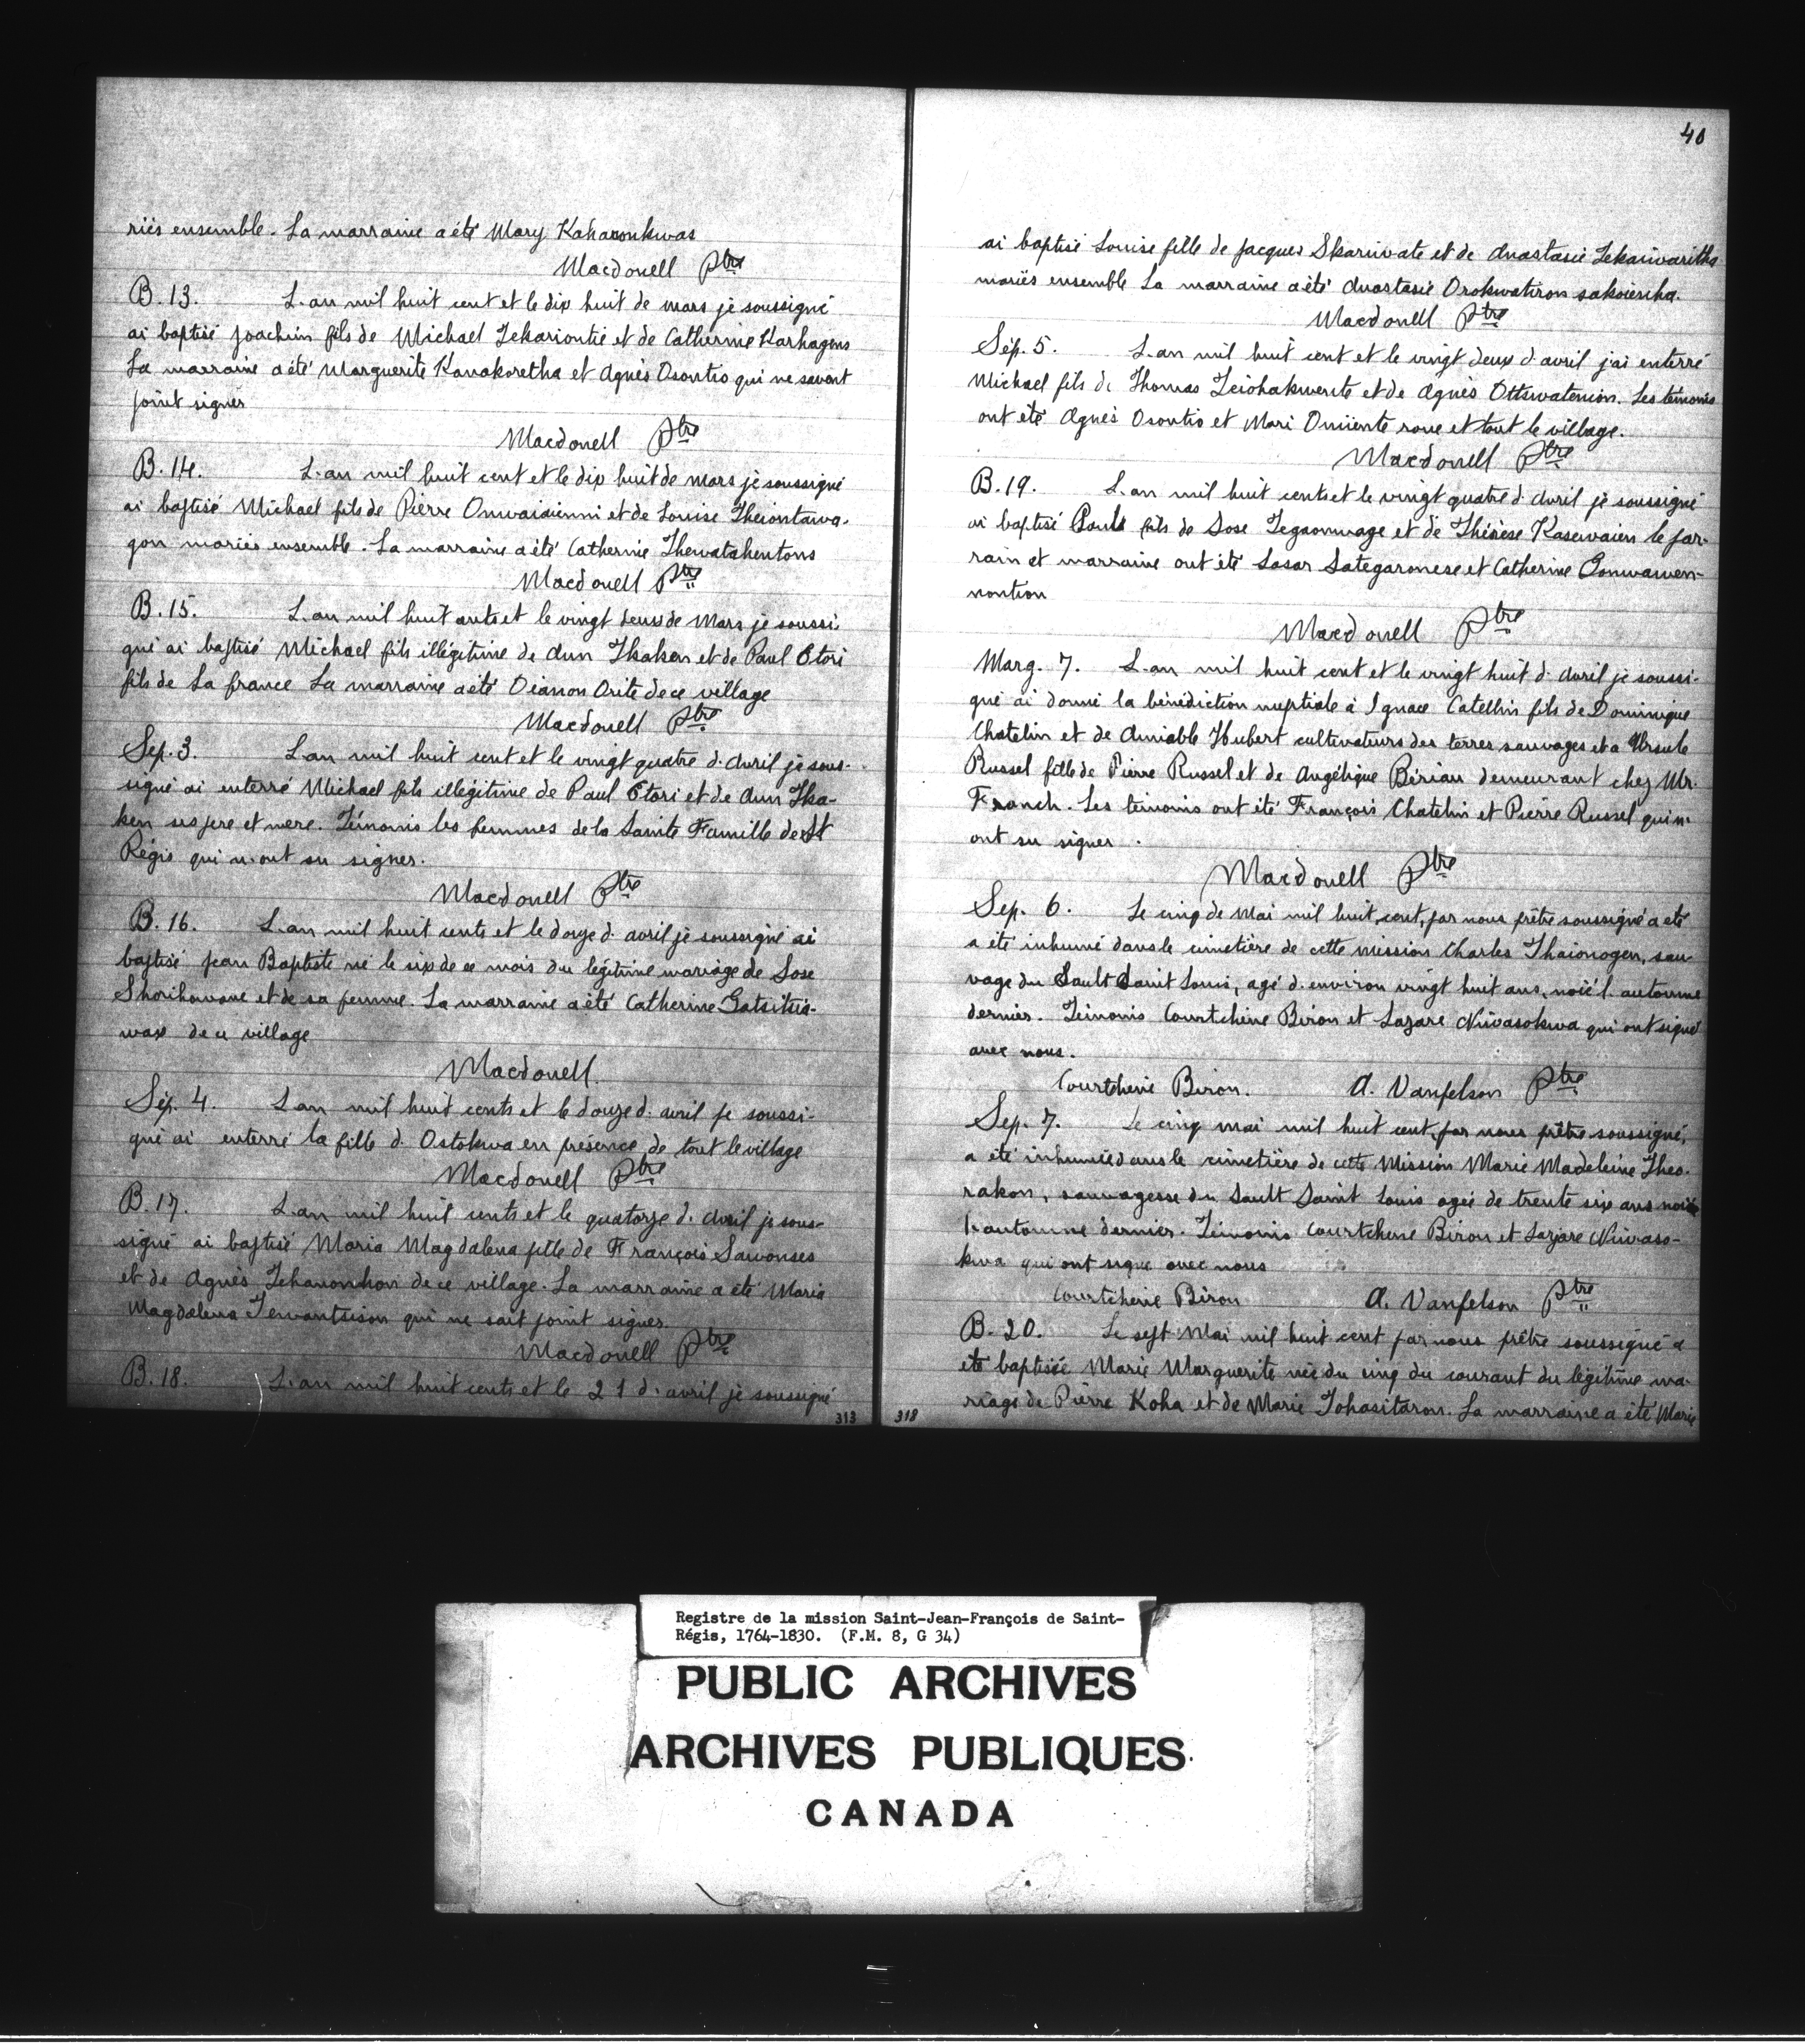 riés ensemble. La marraine a été Mary Kaharonkwas
Macdonell Ptre
B. 13. L'an mil huit cent et le dix huit de mars je soussigné
ai baptisé Joachim fils de Michael Tekariontie et de Catherine Karhagens
La marraine a été Marguerite Kanakoretha et Agnès Osontio qui ne savent
point signer
Macdonell Ptre
B. 14. L'an mil huit cent et le dix huit de mars je soussigné
ai baptisé Michael fils de Pierre Onwaiaienni et de Louise Theiontawa-
gon mariés ensemble. La marraine a été Catherine Thewatahentons
Macdonell Ptre
B. 15. L'an mil huit cents et le vingt deux de Mars je soussi-
gné ai baptisé Michael fils illégitime de Ann Tkaken et de Paul Etori
fils de La france La marraine a été Oianon Orite de ce village
Macdonell Ptre
Sep. 3. L'an mil huit cent et le vingt quatre d'Avril je sous-
signé ai enterré Michael fils illégitime de Paul Etori et de Ann Tka-
ken ses pere et mere. Témonis les femmes de la Sainte Famille de St
Régis qui n'ont su signer.
Macdonell Ptre
B. 16. L'an mil huit cents et le douze d'avril je soussigné ai
baptisé Jean Baptiste né le six de ce mois du légitime mariage de Sose
Shorihowane et de sa femme. La marraine a été Catherine Gatsitsia-
wax de ce village
Macdonell.
Sép. 4. L'an mil huit cents et le douze d'avril je soussi-
gné ai enterré la fille d'Ostokwa en présence de tout le village
Macdonell Ptre
B. 17. L'an mil huit cents et le quatorze d'Avril je sous-
signé ai baptisé Maria Magdalena fille de François Sawonses
et de Agnès Tekanonhon de ce village. La marraine a été Maria
Magdalena Tewantsison qui ne sait point signer.
Macdonell Ptre
B. 18. L'an mil huit cents et le 21 d'avril je soussigné
313
40
ai baptisé Louise fille de Jacques Skanivate et de Anastasie Tekaiwaritha
mariés ensemble La marraine a été Anastasie Orokwatiron sakoiensha.
Macdonell Ptre
Sép. 5. L'an mil huit cent et le vingt deux d'avril j'ai enterré
Michael fils de Thomas Teiohakwente et de Agnès Ottswatenion. Les témonis
ont été Agnès Osontio et Mari Omiiente rone et tout le village.
Macdonell Ptre
B. 19. L'an mil huit cents et le vingt quatre d'Avril je soussigné
ai baptisé Paul fils de Sose Tegaonwage et de Thérèse Kasewaien le par-
rain et marraine ont été Sasar Sategaronese et Catherine Gonwawen-
nontion
Macdonell Ptre
Marg. 7. L'an mil huit cent et le vingt huit d'Avril je soussi-
gné ai donné la bénédiction nuptiale à Ignace Catellin fils de Dominique
Chatelin et de Amiable Hubert cultivateurs des terres sauvages et a Ursule
Russel fille de Pierre Russel et de Angélique Bériau demeurant chez Mr.
Franch. Les témonis ont été François Chatelin et Pierre Russel qui n'
ont su signer.
Macdonell Ptre
Sep. 6. Le cinq de Mai mil huit cent, par nous prêtre soussigné a été
a été inhumé dans le cimetière de cette mission Charles Thaionogen, sau-
vage du Sault Saint Louis, agé d'environ vingt huit ans, noié l'automne
dernier. Témonis Courtchène Biron et Lazare Niwasokwa qui ont signé
avec nous.
Courtchène Biron. A. Vanfelson Ptre
Sep. 7. Le cinq mai mil huit cent, par nous prêtre soussigné,
a été inhumée dans le cimetière de cette Mission Marie Madeleine Theo-
rakon, sauvagesse du Sault Saint Louis agée de trente six ans noié
l'automne dernier. Témonis Courtchène Biron et Lazare Niwaso-
kwa qui ont signé avec nous
Courtchène Biron A. Vanfelson Ptre
B. 20. Le sept Mai mil huit cent par nous prêtre soussigné a
été baptisée Marie Marguerite née du cinq du courant du légitime ma-
riage de Pierre Koha et de Marie Tohasitaron. La marraine a été Marie
318
Registre de la mission Saint-Jean-François de Saint-
Régis, 1764-1830. (F.M. 8, G 34)
PUBLIC ARCHIVES
ARCHIVES PUBLIQUES
CANADA